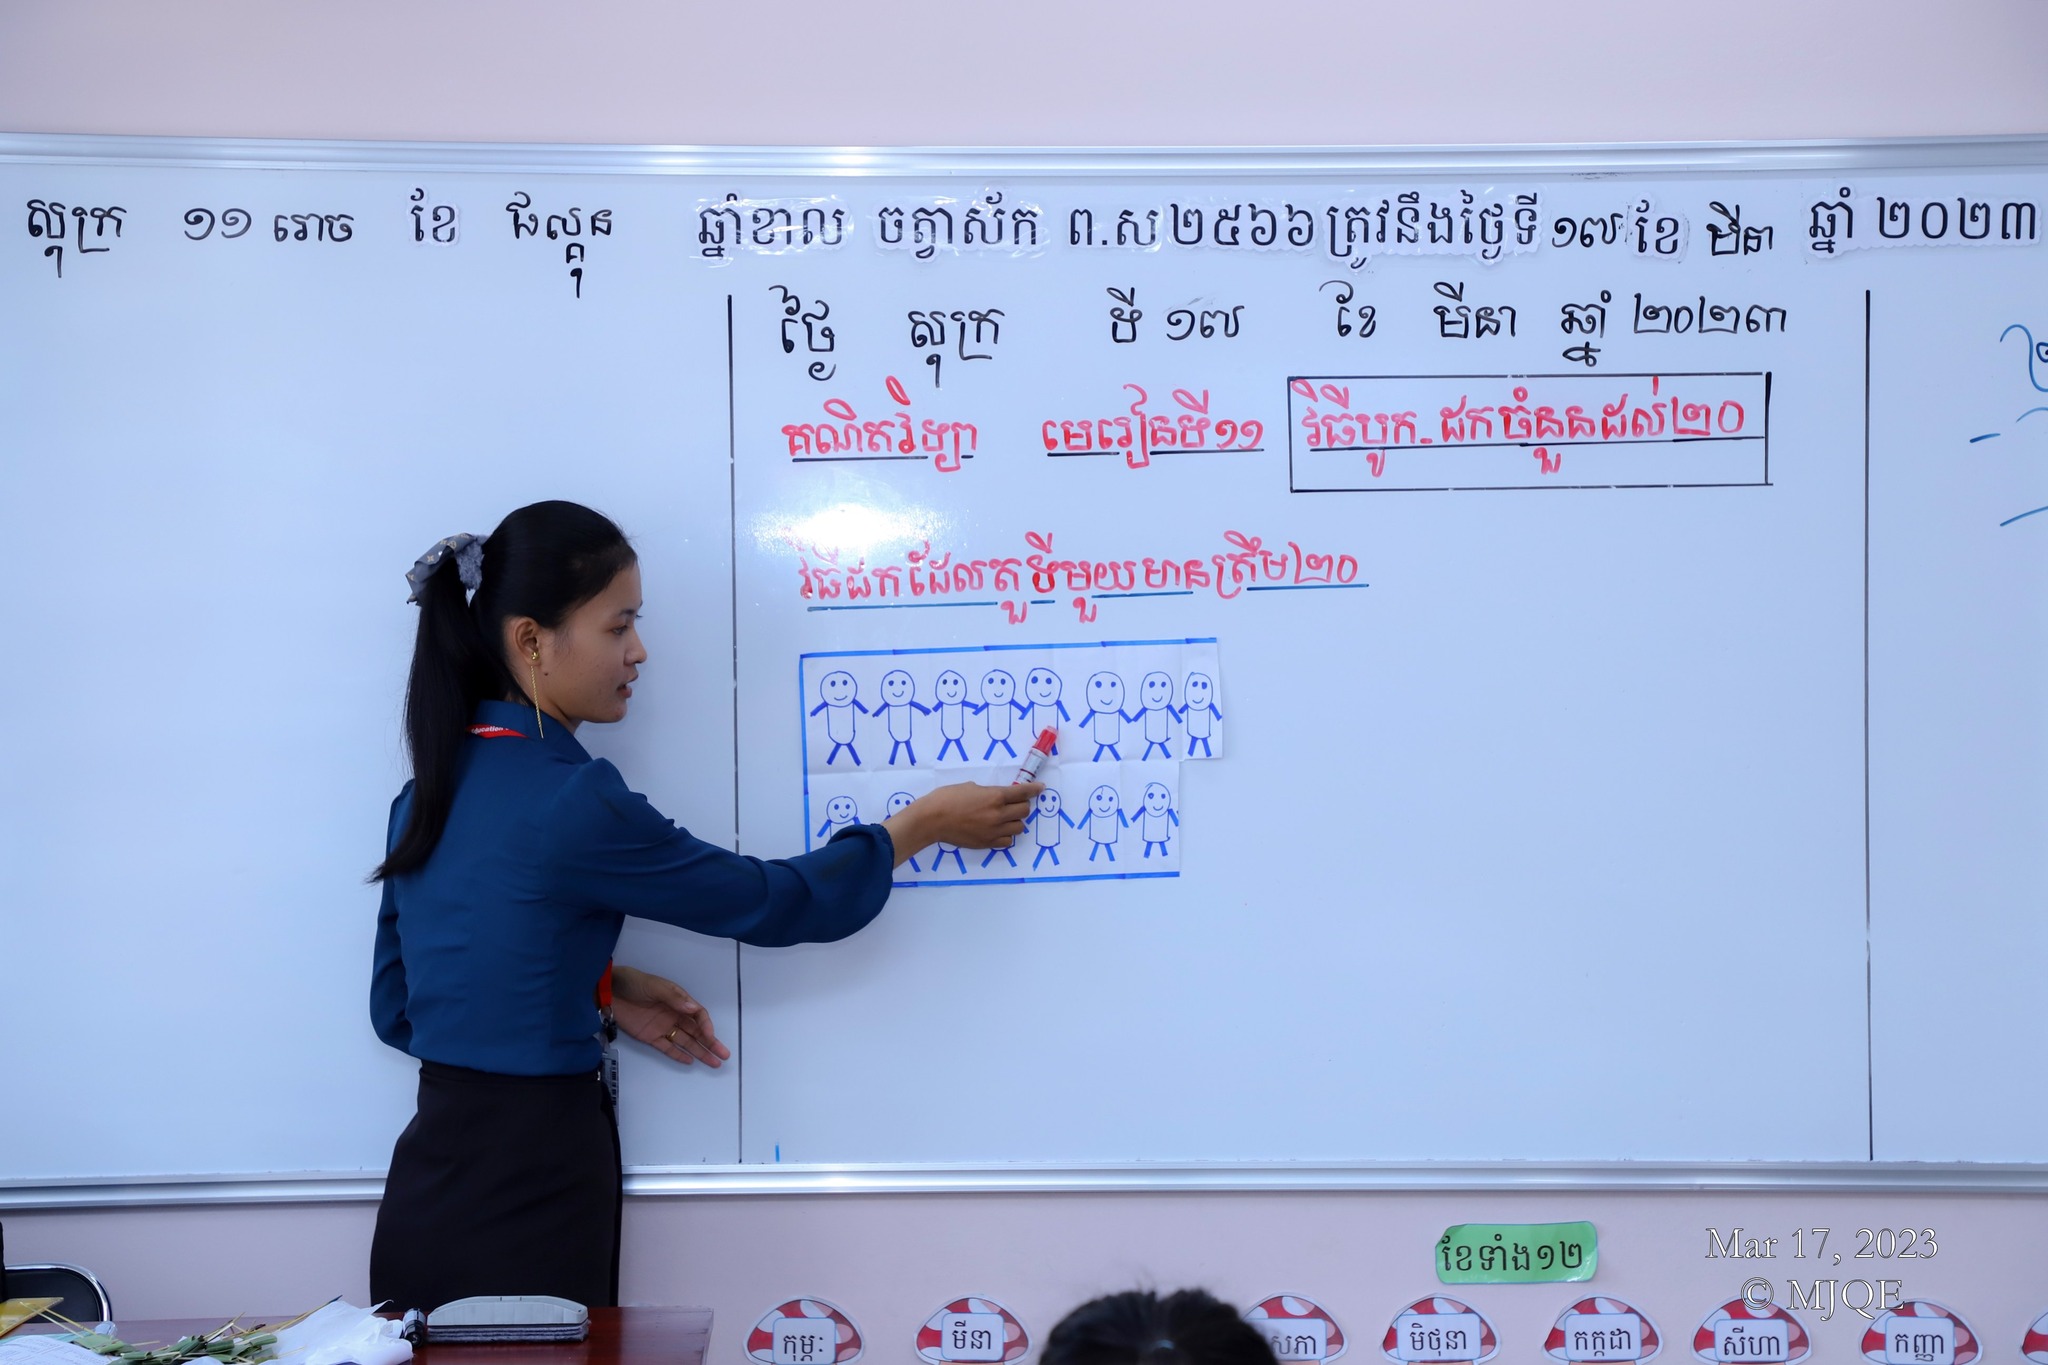 សុក្រ ១១ រោច ខែ ផល្គុន ឆ្នាំខាល ចត្វាស័ក ព.ស ២៥៦៦ ត្រូវនឹងថ្ងៃទី ១៧ ខែ មីនា ឆ្នាំ ២០២៣
ថ្ងៃ សុក្រ ទី ១៧ ខែ មីនា ឆ្នាំ ២០២៣
គណិតវិទ្យា មេរៀនទី១១ វិធីបូក-ដកចំនួនដល់២០
វិធីដកដែលតួទីមួយមានត្រឹម២០
ខែទាំង១២
Mar 17, 2023
© MJQE
កុម្ភៈ មីនា មិថុនា កក្កដា សីហា កញ្ញា